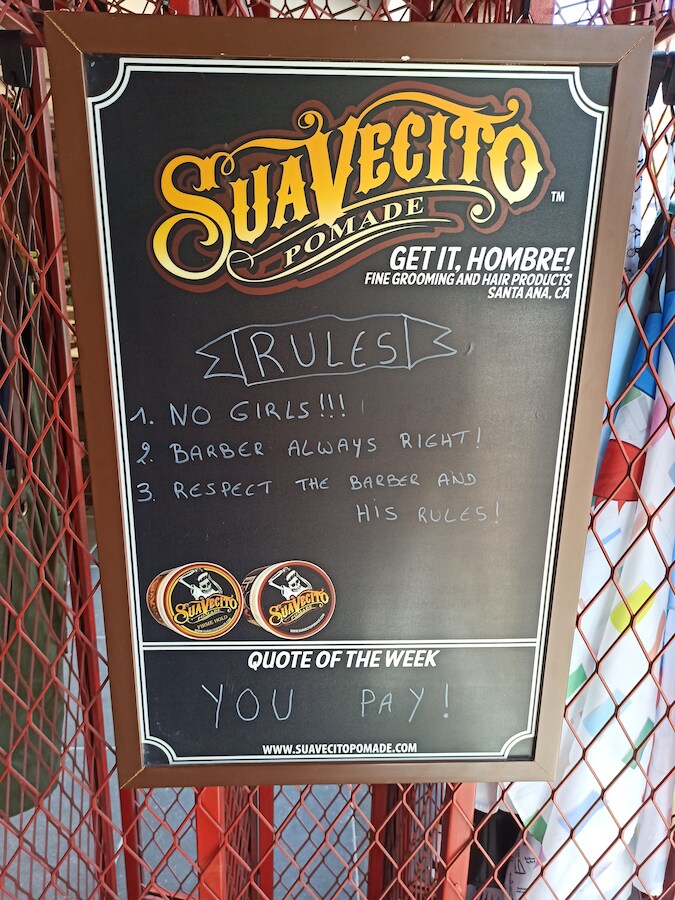 SUAVECITO
POMADE
TM
GET IT, HOMBRE!
FINE GROOMING AND HAIR PRODUCTS
SANTA ANA, CA
RULES
1. NO GIRLS!!!
2. BARBER ALWAYS RIGHT!
3. RESPECT THE BARBER AND
HIS RULES!
SUAVECITO
POMADE
FIRME HOLD
SUAVECITO
POMADE
QUOTE OF THE WEEK
YOU PAY!
WWW.SUAVECITOPOMADE.COM